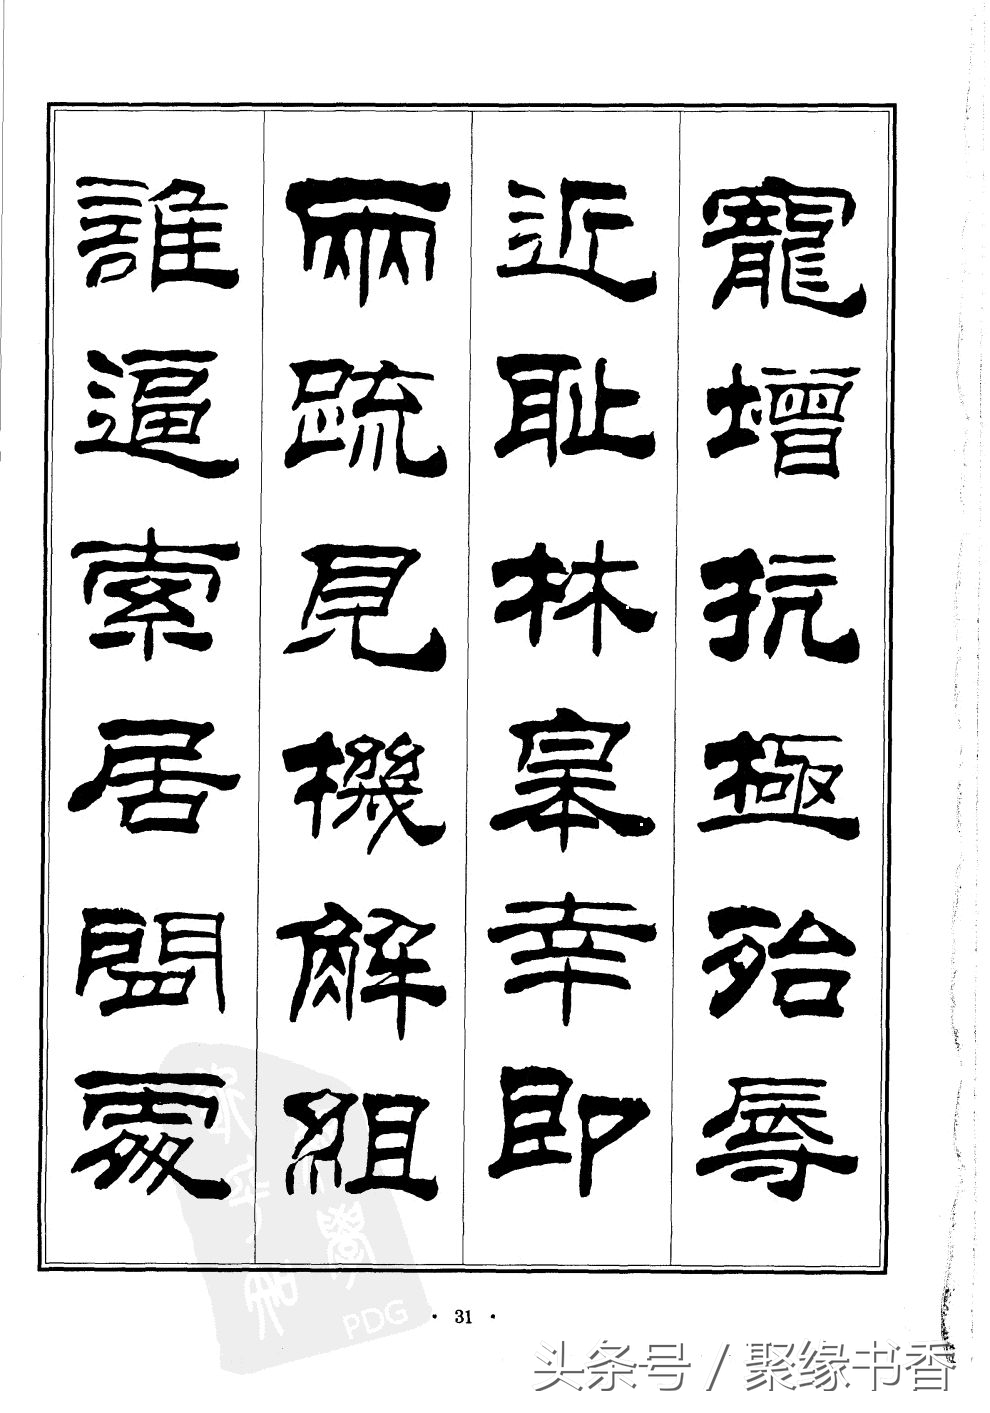 寵增抗極殆辱
近耻林皋幸即
兩疏見機解組
誰逼索居閒處
PDG
· 31 ·
头条号 / 聚缘书香